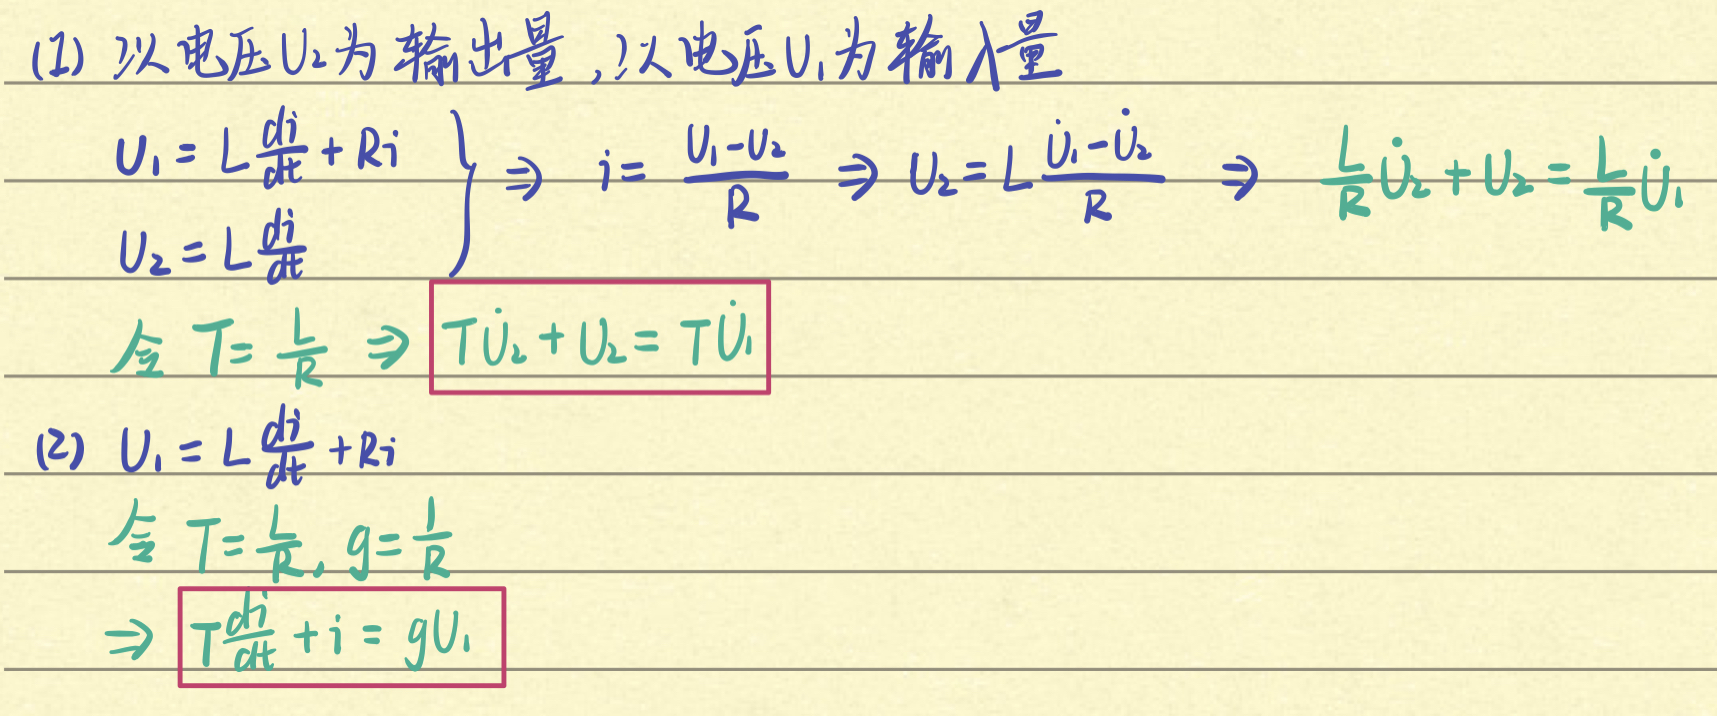 (1) 以电压U₂为输出量,以电压U₁为输入量
U₁ = L di/dt + Ri
U₂ = L di/dt } ⇒ i = (U₁-U₂)/R ⇒ U₂ = L (U̇₁-U̇₂)/R ⇒ L/R U̇₂ + U₂ = L/R U̇₁
令 T = L/R ⇒ TU̇₂ + U₂ = TU̇₁
(2) U₁ = L di/dt + Ri
令 T = L/R, g = 1/R
⇒ T di/dt + i = gU₁